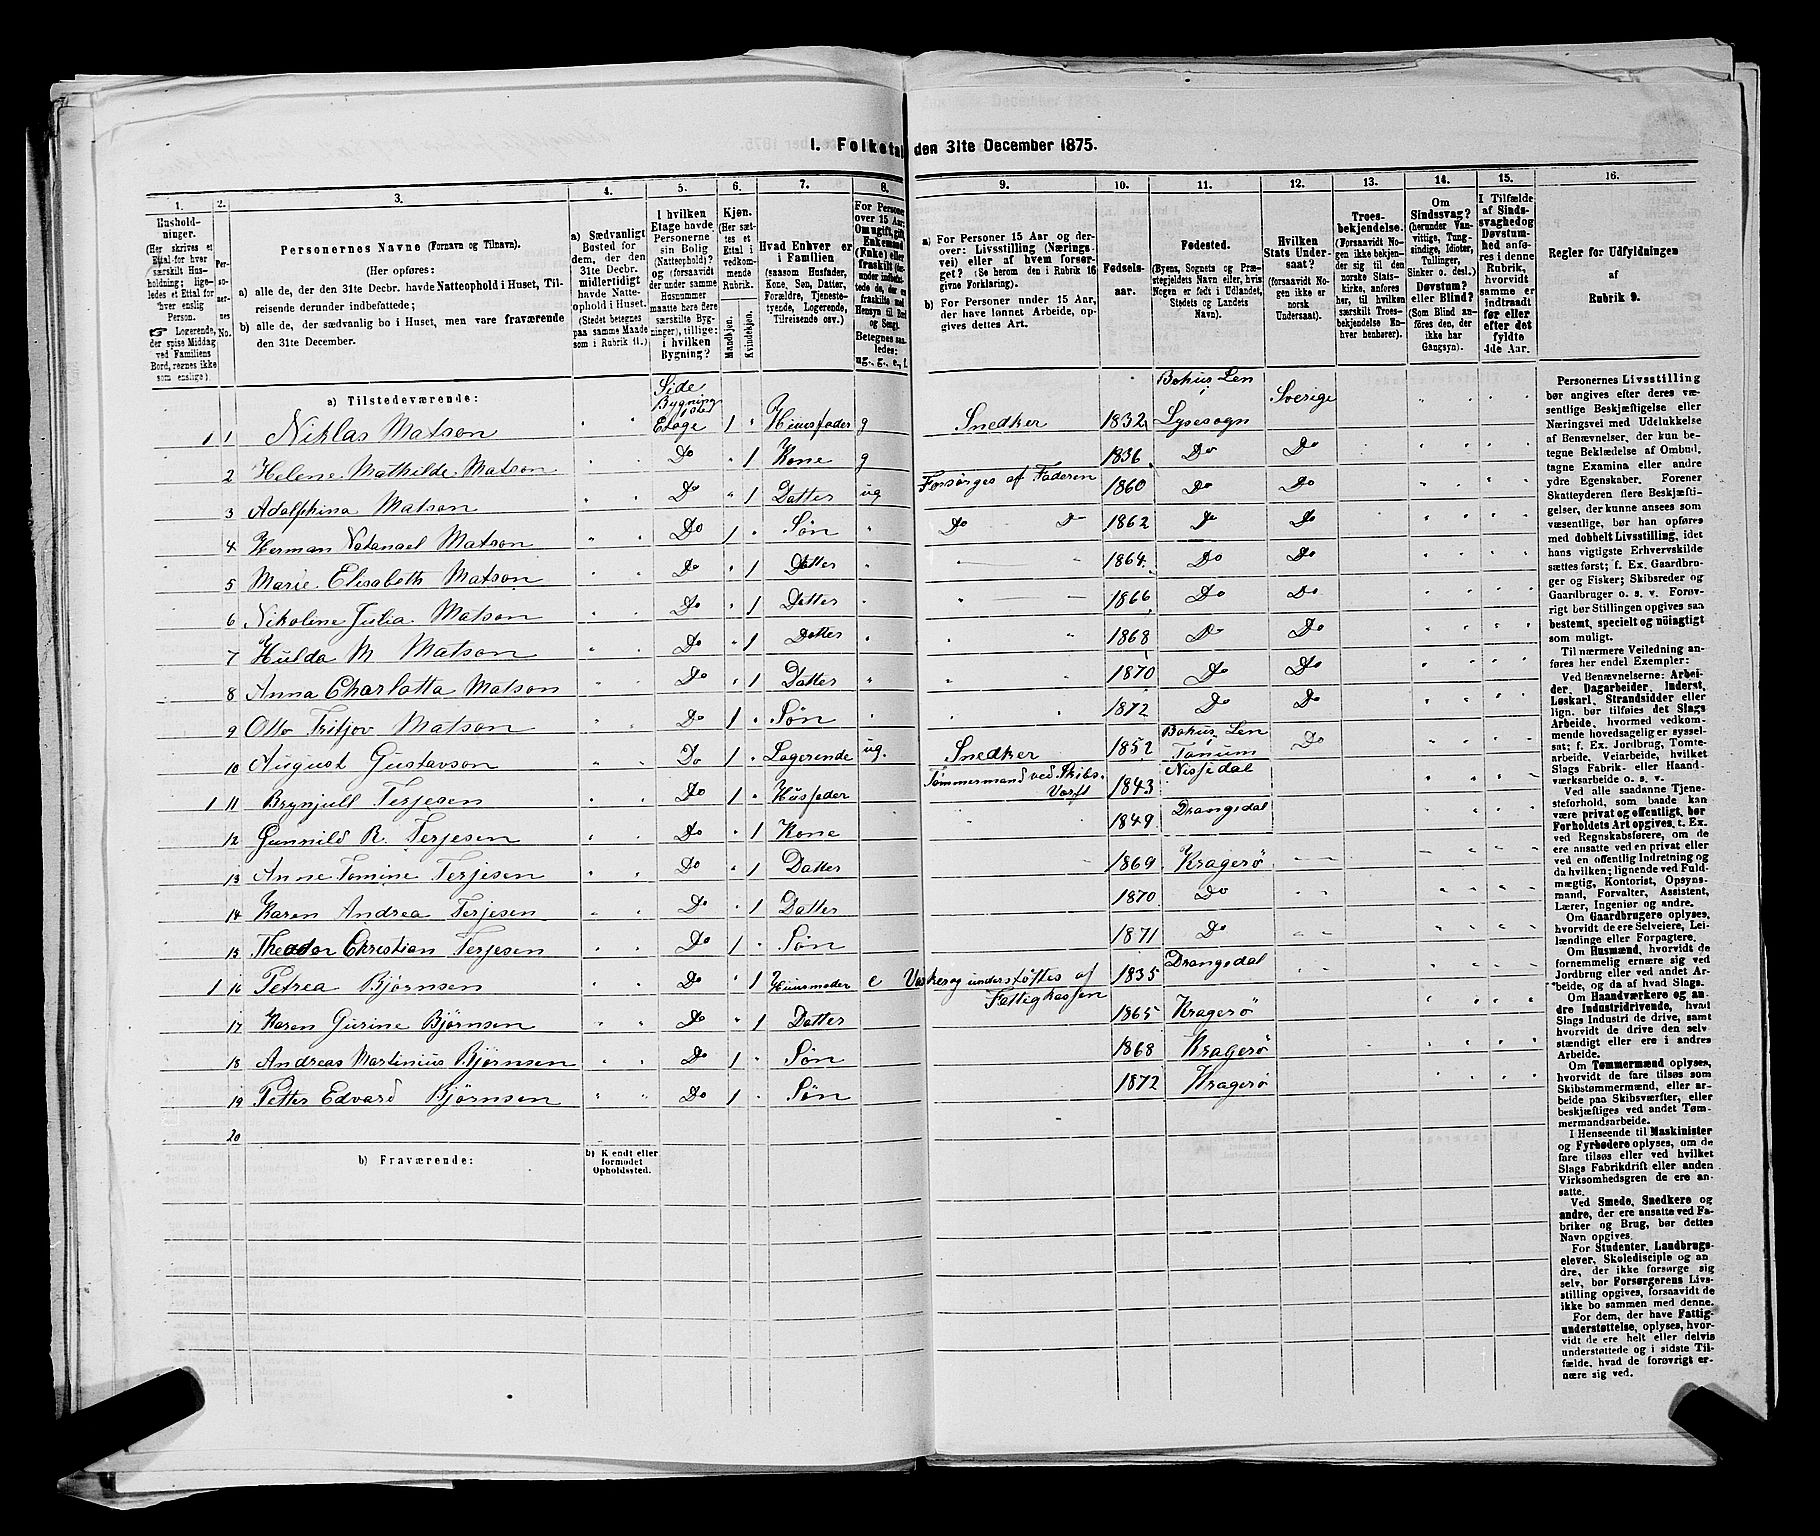 I. Folketal den 31te December 1875.
1. 2. 3. 4. 5. 6. 7. 8. 9. 10. 11. 12. 13. 14. 15. 16.
Hushold-
ninger.
(Her skrives et
Ettal for hver
særskilt Hus-
holdning; lige-
ledes et Ettal for
hver enslig
Person.
☞ Logerende,
der spise Middag
ved Familiens
Bord, regnes ikke
som enslige).
Per-
so-
ner-
nes
No.
Personernes Navne (Fornavn og Tilnavn).
(Her opføres:
a) alle de, der den 31te Decbr. havde Natteophold i Huset, Til-
reisende derunder indbefattede;
b) alle de, der sædvanlig bo i Huset, men vare fraværende
den 31te December.
a) Sædvanligt
Bosted for
dem, der den
31te Decbr.
midlertidigt
havde Natte-
ophold i Huset.
(Stedet betegnes
paa samme Maade
som i Rubrik 11.)
I hvilken
Etage havde
Personerne
sin Bolig
(Natteophold)?
og (forsaavidt
der under samme
Husnummer
maatte høre flere
særskilte Byg-
ninger), tillige:
i hvilken
Bygning?
Kjøn.
(Her sæt-
tes et
Ettal i
vedkom-
mende
Rubrik.
Mandkjøn.
Kvindekjøn.
Hvad Enhver er
i Familien
(saasom Husfader,
Kone, Søn, Datter,
Forældre, Tjeneste-
tyende, Logerende,
Tilreisende osv.)
For Personer
over 15 Aar:
Om ugift, gift,
Enkemand
(Enke) eller
fraskilt
Betegnes saa-
ledes:
ug., g., e., f.
a) For Personer 15 Aar og der-
over: Livsstilling (Nærings-
vei) eller af hvem forsør-
get? (Se herom den i Rubrik 16
givne Forklaring).
b) For Personer under 15 Aar,
der have lønnet Arbeide, op-
gives dettes Art.
Fødsels-
aar.
Fødested.
(Byens, Sognets og Præ-
stegjeldets Navn eller, hvis
Nogen er født i Udlandet,
Stedets og Landets
Navn).
Hvilken
Stats Under-
saat?
(forsaavidt No-
gen ikke er
norsk
Undersaat).
Troes-
bekjendelse.
(Forsaavidt No-
gen ikke bekjen-
der sig til den
norske Stats-
kirke, anføres
her, til hvilken
særskilt Troes-
bekjendelse En-
hver henhører).
Om
Sindssvag?
(herunder Van-
vittige, Tung-
sindige, Idioter,
Tullinger,
Sinker o. desl.)
Døvstum?
eller Blind?
(Som Blind an-
føres den, der
ikke har
Gangsyn).
I Tilfælde
af Sinds-
svaghed og
Døvstum-
hed anfø-
res i denne
Rubrik,
hvorvidt
samme er
indtraadt
før eller
efter det
fyldte
4de Aar.
Regler for Udfyldningen
af
Rubrik 9.
a) Tilstedeværende:
1 1 Niklas Matson Side Bygning 1ste Etage 1 Huusfader g Snedker 1832 Bohus Len Lysesogn Sverige
2 Helene Mathilde Matson Do 1 Kone g 1836 Do Do
3 Adolphina Matson Do 1 Datter ug Forsørges af Faderen 1860 Do Do
4 Herman Natanael Matson Do 1 Søn Do D 1862 Do Do
5 Marie Elisabeth Matson Do 1 Datter 1864 Do Do
6 Nikoline Julia Matson Do 1 Datter 1866 Do Do
7 Hulda M Matson Do 1 Datter 1868 Do Do
8 Anna Charlotta Matson Do 1 Datter 1870 Do Do
9 Otto Tritjov Matson Do 1 Søn 1872 Do Do
10 August Gustavson Do 1 Logerende ug. Snedker 1852 Bohus Len Tanum Do
1 11 Brynjull Terjesen Do 1 Husfader Tømmermand ved Skibs-Værft 1843 Nissedal
12 Gunnild R. Terjesen Do 1 Kone 1849 Drangedal
13 Anne Tomine Terjesen Do 1 Datter 1869 Kragerø
14 Karen Andrea Terjesen Do 1 Datter 1870 Do
15 Theodor Christian Terjesen Do 1 Søn 1871 Do
1 16 Petrea Bjørnsen Do 1 Huusmoder e Vasker og understøttes af Fattigkassen 1835 Drangedal
17 Karen Gurine Bjørnsen Do 1 Datter 1865 Kragerø
18 Andreas Martinius Bjørnsen Do 1 Søn 1868 Kragerø
19 Petter Edvard Bjørnsen Do 1 Søn 1872 Kragerø
20
b) Fraværende:
b) Kendt eller
formodet
Opholdssted.
Personernes Livsstilling
bør angives efter deres væ-
sentlige Beskjæftigelse eller
Næringsvei med Udelukkelse
af Benævnelser, der kun be-
tegne Beklædelse af Ombud,
tagne Examina eller andre
ydre Egenskaber. Forener
Skatteyderen flere Beskjæfti-
gelser, der kunne ansees som
væsentlige, bør han opføres
med dobbelt Livsstilling, idet
hans vigtigste Erhvervskilde
sættes først; f. Ex. Gaardbru-
ger og Fisker; Skibsreder og
Gaardbruger o. s. v. Forøv-
rigt bør Stillingen opgives saa
bestemt, specielt og nöiagtigt
som muligt.
Til nærmere Veiledning an-
føres her endel Exempler:
Ved Benævnelserne: Arbei-
der, Dagarbeider, Inderst,
Løskarl, Strandsidder eller
lign. bør tilføies det Slags
Arbeide, hvormed vedkom-
mende hovedsagelig er syssel-
sat; f. Ex. Jordbrug, Tomte-
arbeide, Veiarbeide, hvilket
Slags Fabrik- eller Haand-
værksarbeide o. s. v.
Ved alle saadanne Tjene-
steforhold, som baade kan
være privat og offentligt, bør
Forholdets Art opgives, t. Ex.
ved Regnskabsførere, om de
ere ansatte ved en privat eller
ved en offentlig Indretning og
da hvilken; lignende ved Fuld-
mægtig, Kontorist, Opsyns-
mand, Forvalter, Assistent,
Lærer, Ingeniør og andre.
Om Gaardbrugere oplyses,
hvorvidt de ere Selveiere, Lei-
lændinge eller Forpagtere.
Om Husmænd, hvorvidt de
fornemmelig ernære sig ved
Jordbrug eller ved andet Ar-
beide, og da af hvad Slags.
Om Haandværkere og an-
dre Industridrivende, hvad
Slags Industri de drive, samt
hvorvidt de drive den selv-
stændigt eller ere i andres
Arbeide.
Om Tømmermænd oplyses,
hvorvidt de fare tilsøs som
Skibstømmermænd, eller ar-
beide paa Skibsværfter, eller
beskjæftiges ved andet Tøm-
mermandsarbeide.
I Henseende til Maskinister
og Fyrbødere oplyses, om de
fare tilsøs eller ved hvilket
Slags Fabrikdrift eller anden
Virksomhedsgren de ere an-
satte.
Ved Smede, Snedkere og
andre, der ere ansatte ved Fa-
briker og Brug, bør dettes
Navn opgives.
For Studenter, Landbrugs-
elever, Skoledisciple og an-
dre, der ikke forsørge sig
selv, bør Forsørgerens Livs-
stilling opgives, forsaavidt de
ikke bo sammen med denne.
For dem, der have Fattig-
understøttelse, oplyses, hvor-
vidt de ere helt eller delvis
understøttede og i sidste Til-
fælde, hvad de forøvrigt er-
nære sig ved.